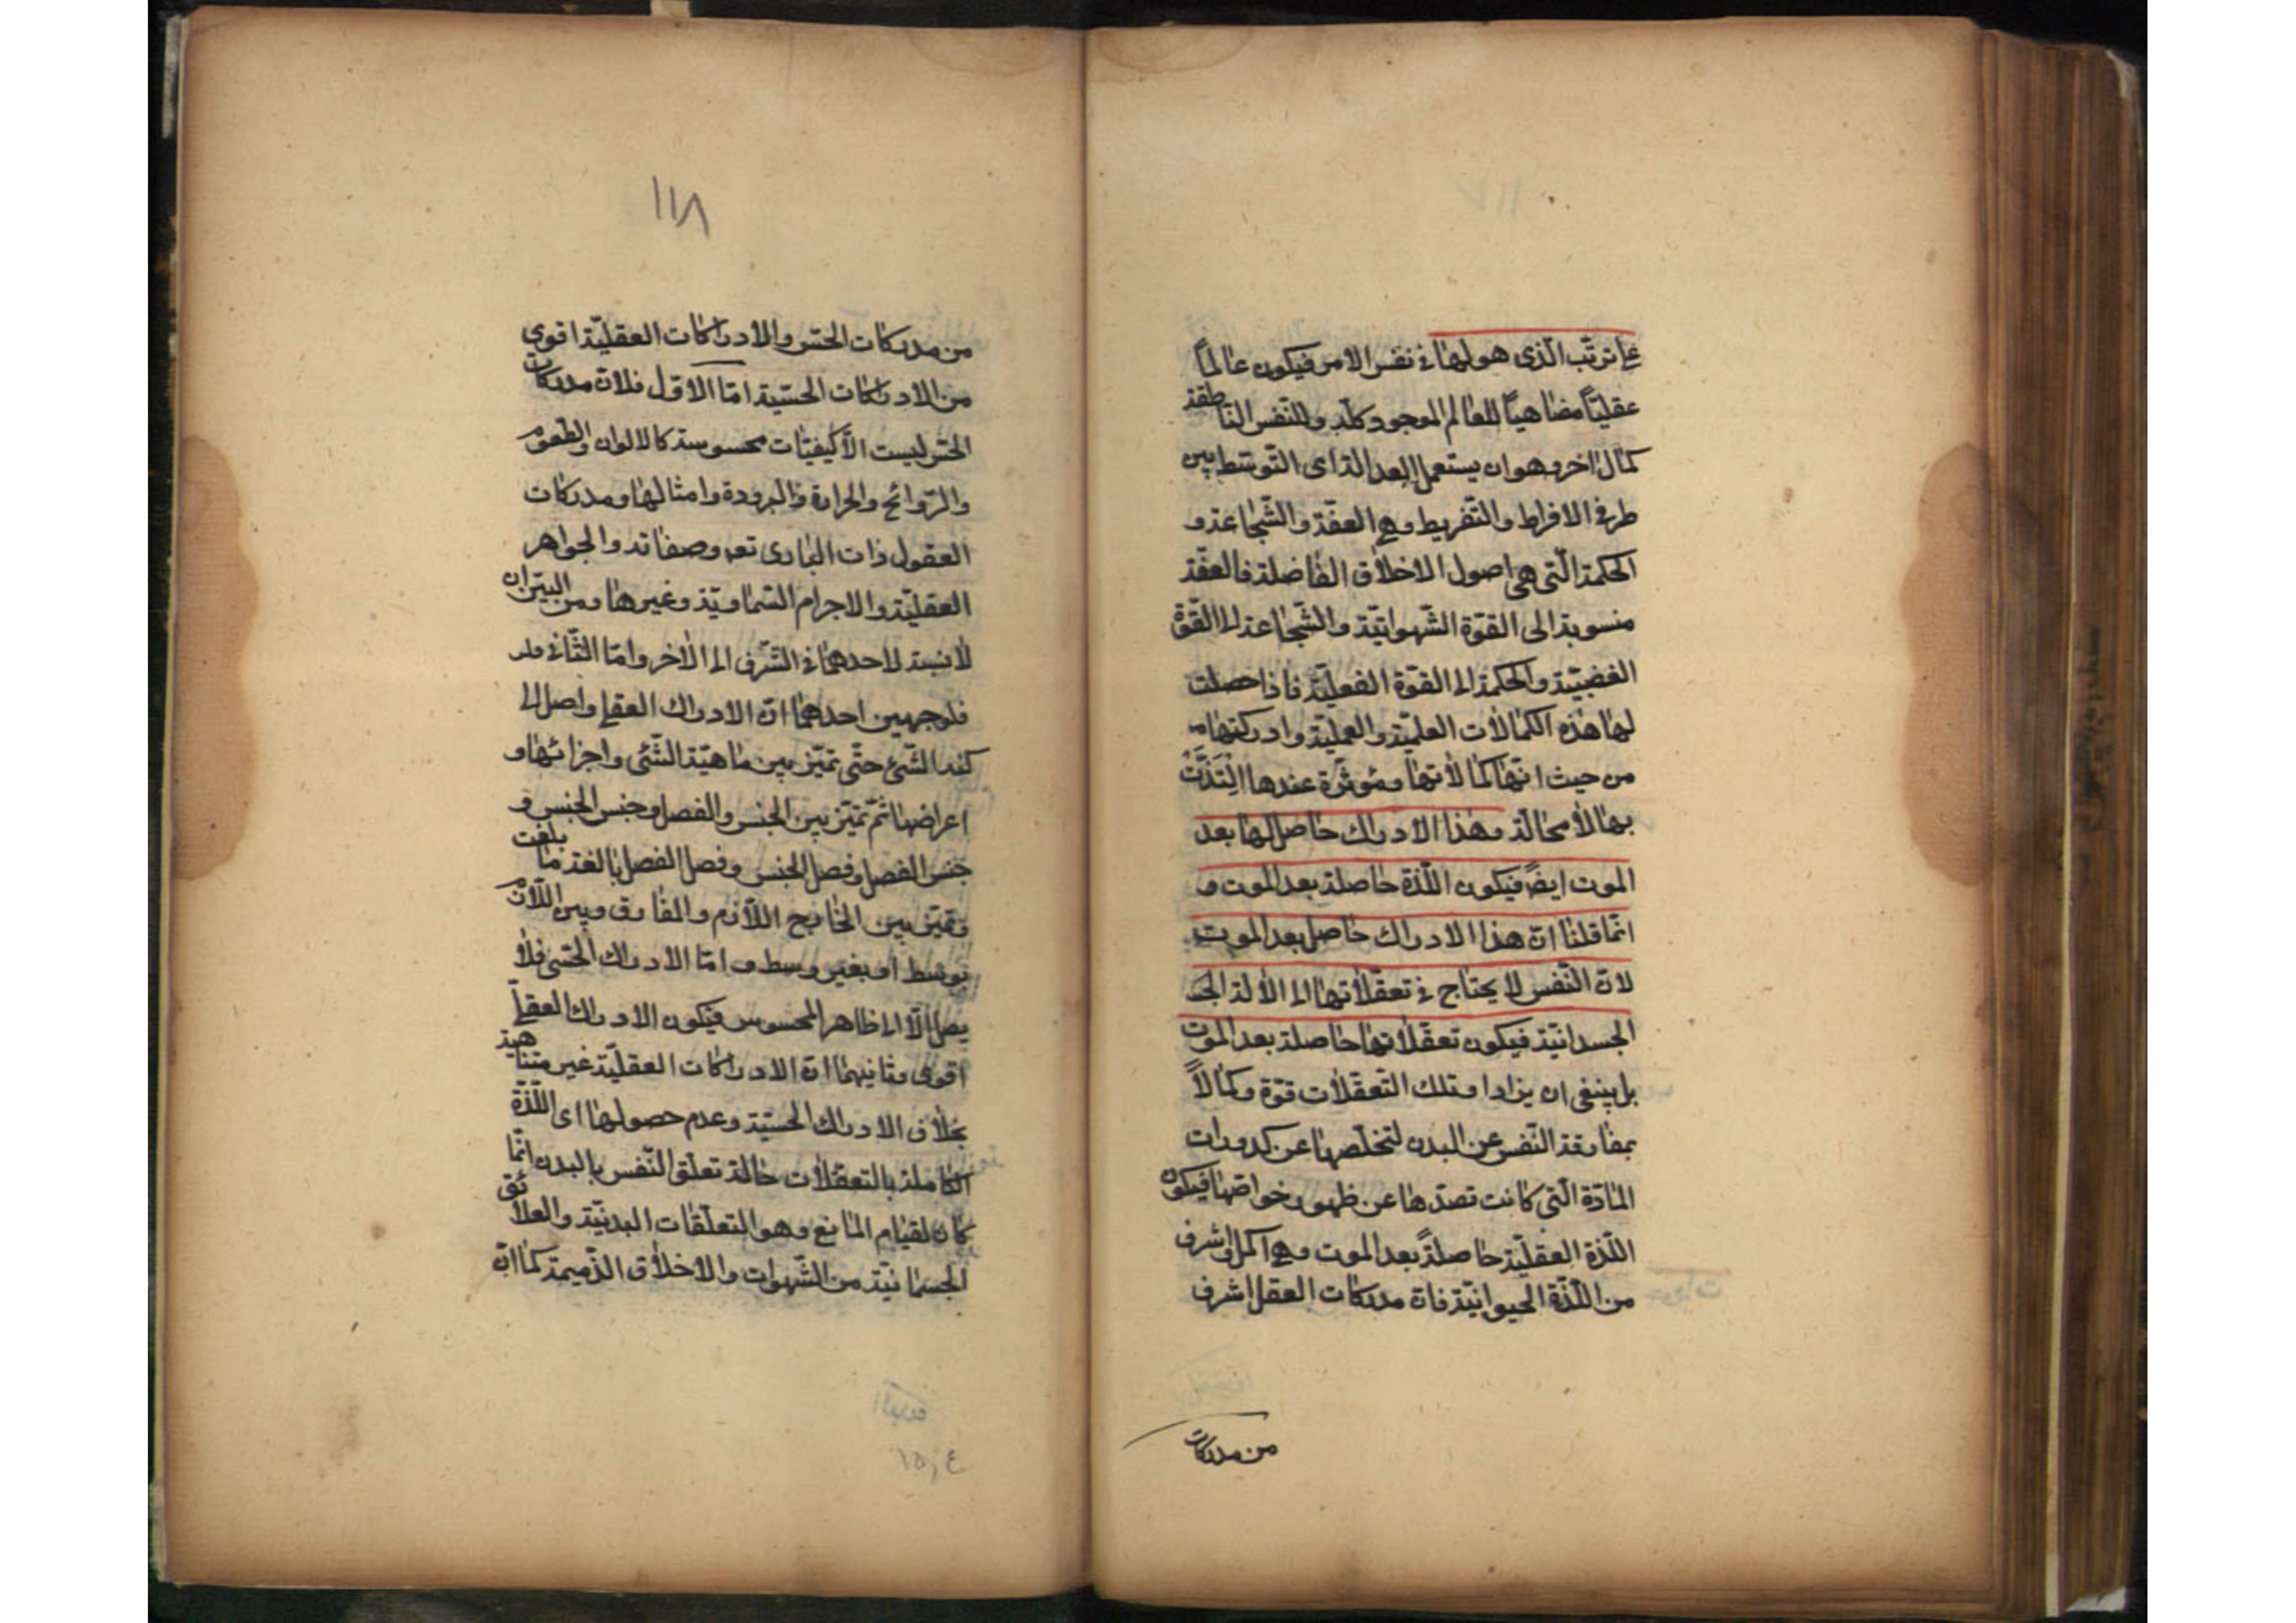 على ترتّب الّذى هو لها فى نفس الامر فيكون عالماً
عقليّاً مضاهياً للعالم الموجود كلّه وللنّفس الناطقة
كمال اخر وهو ان يستعمل العدالة اى التّوسّط بين
طرفى الافراط والتّفريط وهى العفّة والشّجاعة و
الحكمة الّتى هى اصول الاخلاق الفاضلة فالعفّة
منسوبة الى القوّة الشّهوانيّة والشّجاعة الى القوّة
الغضبيّة والحكمة الى القوّة الفعليّة فاذا حصلت
لها هذه الكمالات العلميّة والعمليّة وادركتها
من حيث انّها كمالاتها ومؤثرة عندها التذّت
بها لا محالة وهذا الادراك حاصل لها بعد
الموت ايضً فيكون اللّذة حاصلة بعد الموت و
انّما قلنا انّ هذا الادراك حاصل بعد الموت
لانّ النّفس لا يحتاج فى تعقّلاتها الى الالة الجـ
الجسدانيّة فيكون تعقّلاتها حاصلة بعد الموت
بل ينبغى ان يزاد اد تلك التّعقّلات قوّة وكمالاً
بمفارقة النّفس عن البدن لتخلّصها عن كدورات
المادّة الّتى كانت تصدّها عن ظهور خواصّها فيكون
اللّذة العقليّة حاصلةً بعد الموت وهى اكمل واشرف
من اللّذة الحيوانيّة فانّ مدركات العقل اشرف
من مدركات
١١٨
من مدركات الحسّ والادراكات العقليّة اقوى
من الادراكات الحسّيّة امّا الاوّل فلانّ مدركات
الحسّ ليست الّا كيفيّات محسوسة كالالوان والطعوم
والرّوائح والحرارة والبرودة وامثالها ومدركات
العقول ذات البارى تعه وصفاته والجواهر
العقليّة والاجرام السّماويّة وغيرها ومن البيّن ان
لا نسبة لاحدهما فى الشّرف الى الاخر وامّا الثّانى فلـ
فلوجهين احدهما انّ الادراك العقلى واصل الى
كنه الشّئ حتّى تميّز بين ماهيّة الشّئى واجزائها و
اعراضها ثمّ تميّز بين الجنس والفصل وجنس الجنس و
جنس الفصل وفصل الجنس وفصل الفصل بالغة ما بلغت
وتميّز بين الخارج اللّازم والمفارق وبين اللّازم
بوسط او بغير وسط وامّا الادراك الحسّى فلا
يصل الّا الى ظاهر المحسوس فيكون الادراك العقلىّ
اقوى وثانيهما انّ الادراكات العقليّة غير متناهية
بخلاف الادراك الحسّيّة وعدم حصولها اى اللّذّة
الكاملة بالتعقّلات حالة تعلّق النّفس بالبدن انّما
كان لقيام المانع وهو التعلّقات البدنيّة والعلائق
الجسمانيّة من الشّهوات والاخلاق الذّميمة كما انّ